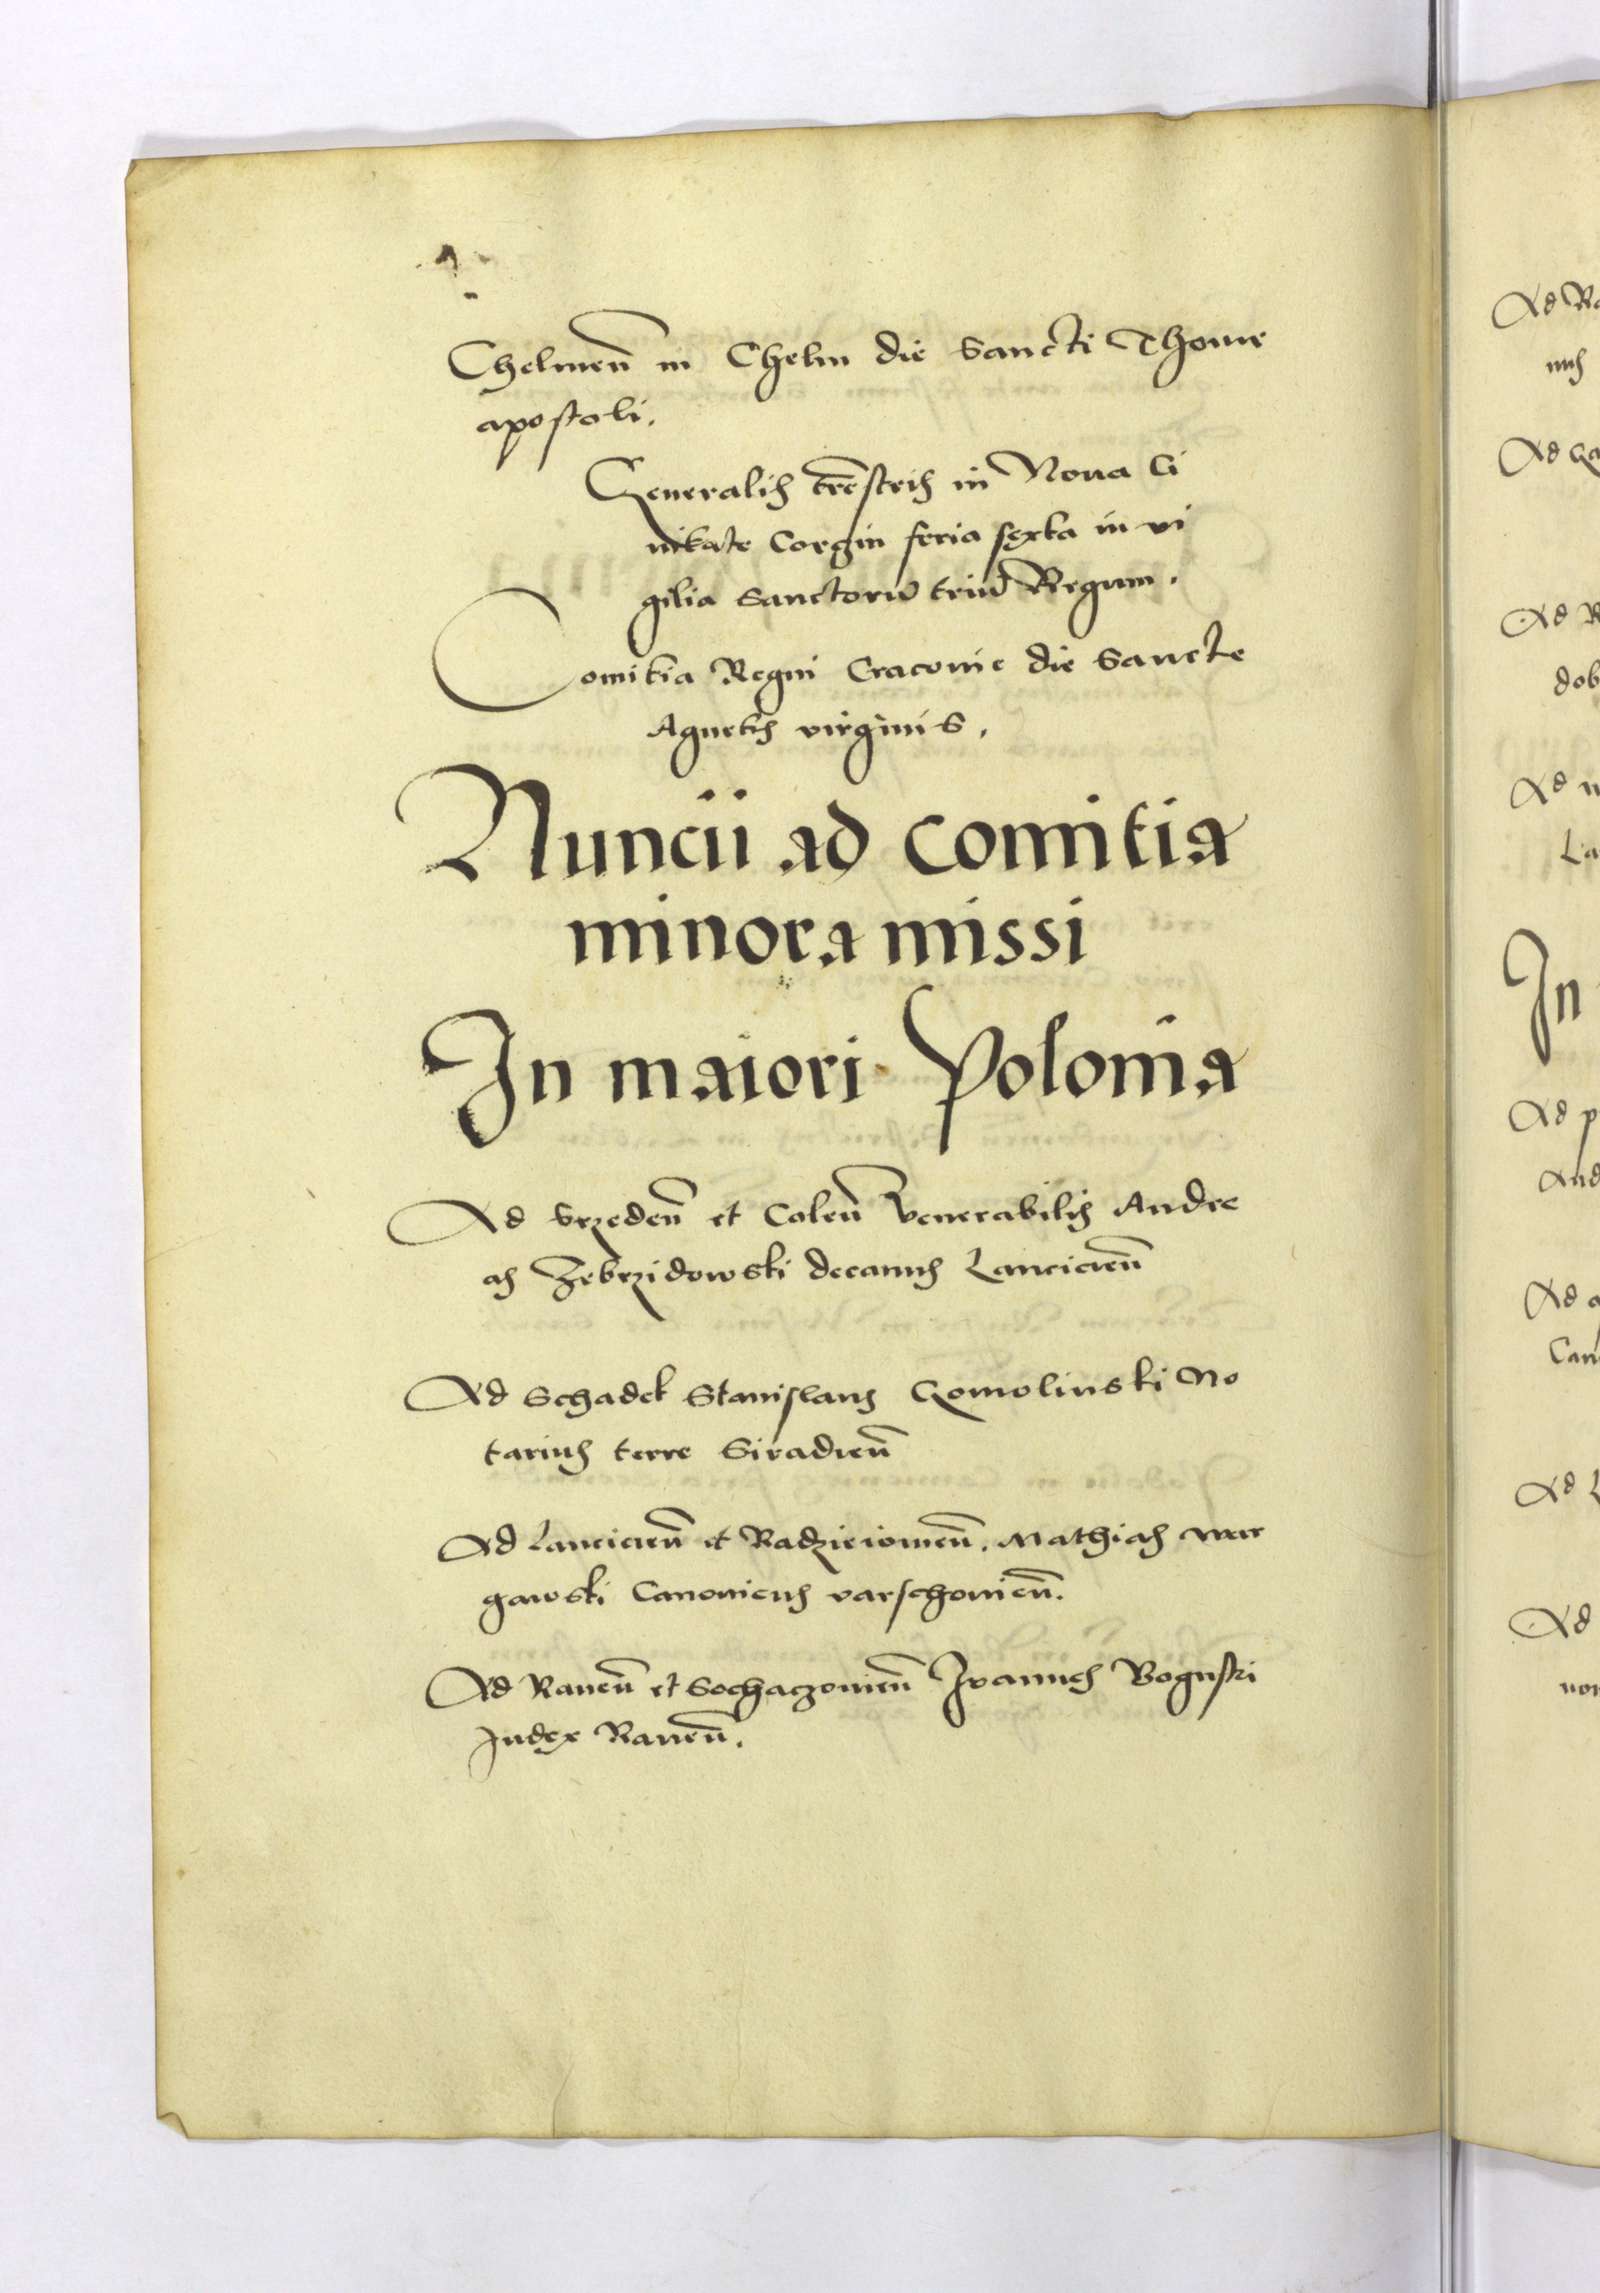 Chelmen̄ in Chelm die Sancti Thome
apostoli.
Generalis tr̄estris in Noua Ci
uitate Corgin feria sexta in vi
gilia Sanctorū triū Regum.
Comitia Regni Cracouie die Sancte
Agnetis virginis.
Nuncii ad comitia
minora missi
In maiori Polonia
Ad Srzeden̄ et Colen̄ Venerabilis Andre
as Zebrzidowski decanus Lancicien̄
Ad Schadek Stanislaus Gomolinski No
tarius terre Siradien̄
Ad Lancicien̄ et Radzieiouien̄. Mathias war
gawski Canonicus varschouien̄.
Ad Rauen̄ et Sochaczouien̄ Joannes Boguski
Judex Rauen̄.
Ad
Ad
Ad
dob
Ad
In
Ad
And
Ad
Can
Ad
Ad
non